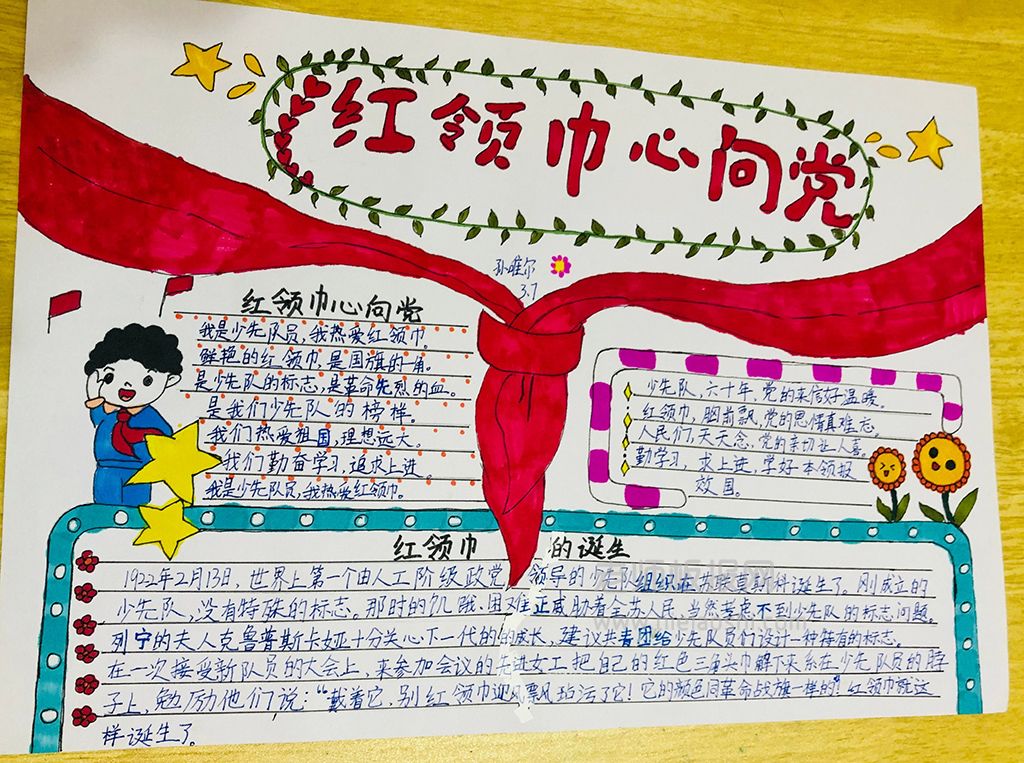 红领巾心向党
孙唯尔
3.7
红领巾心向党
我是少先队员,我热爱红领巾。
鲜艳的红领巾是国旗的一角。
是少先队的标志,是革命先烈的血。
是我们少先队的榜样。
我们热爱祖国,理想远大。
我们勤奋学习,追求上进。
我是少先队员,我热爱红领巾。
少先队,六十年,党的来信好温暖。
红领巾,胸前飘,党的恩情真难忘。
人民们,天天念,党的亲切让人喜。
勤学习,求上进,学好本领报
效国。
红领巾的诞生
1922年2月13日,世界上第一个由人工阶级政党领导的少先队组织在苏联莫斯科诞生了。刚成立的
少先队,没有特殊的标志。那时的饥饿、困难正威胁着全苏人民,当然考虑不到少先队的标志问题。
列宁的夫人克鲁普斯卡娅十分关心下一代的的成长,建议共青团给少先队员们设计一种特有的标志。
在一次接受新队员的大会上,来参加会议的先进女工把自己的红色三角头巾解下来系在少先队员的脖
子上,勉励他们说:“戴着它,别红领巾迎风飘风玷污了它!它的颜色同革命战旗一样的”红领巾就这
样诞生了。